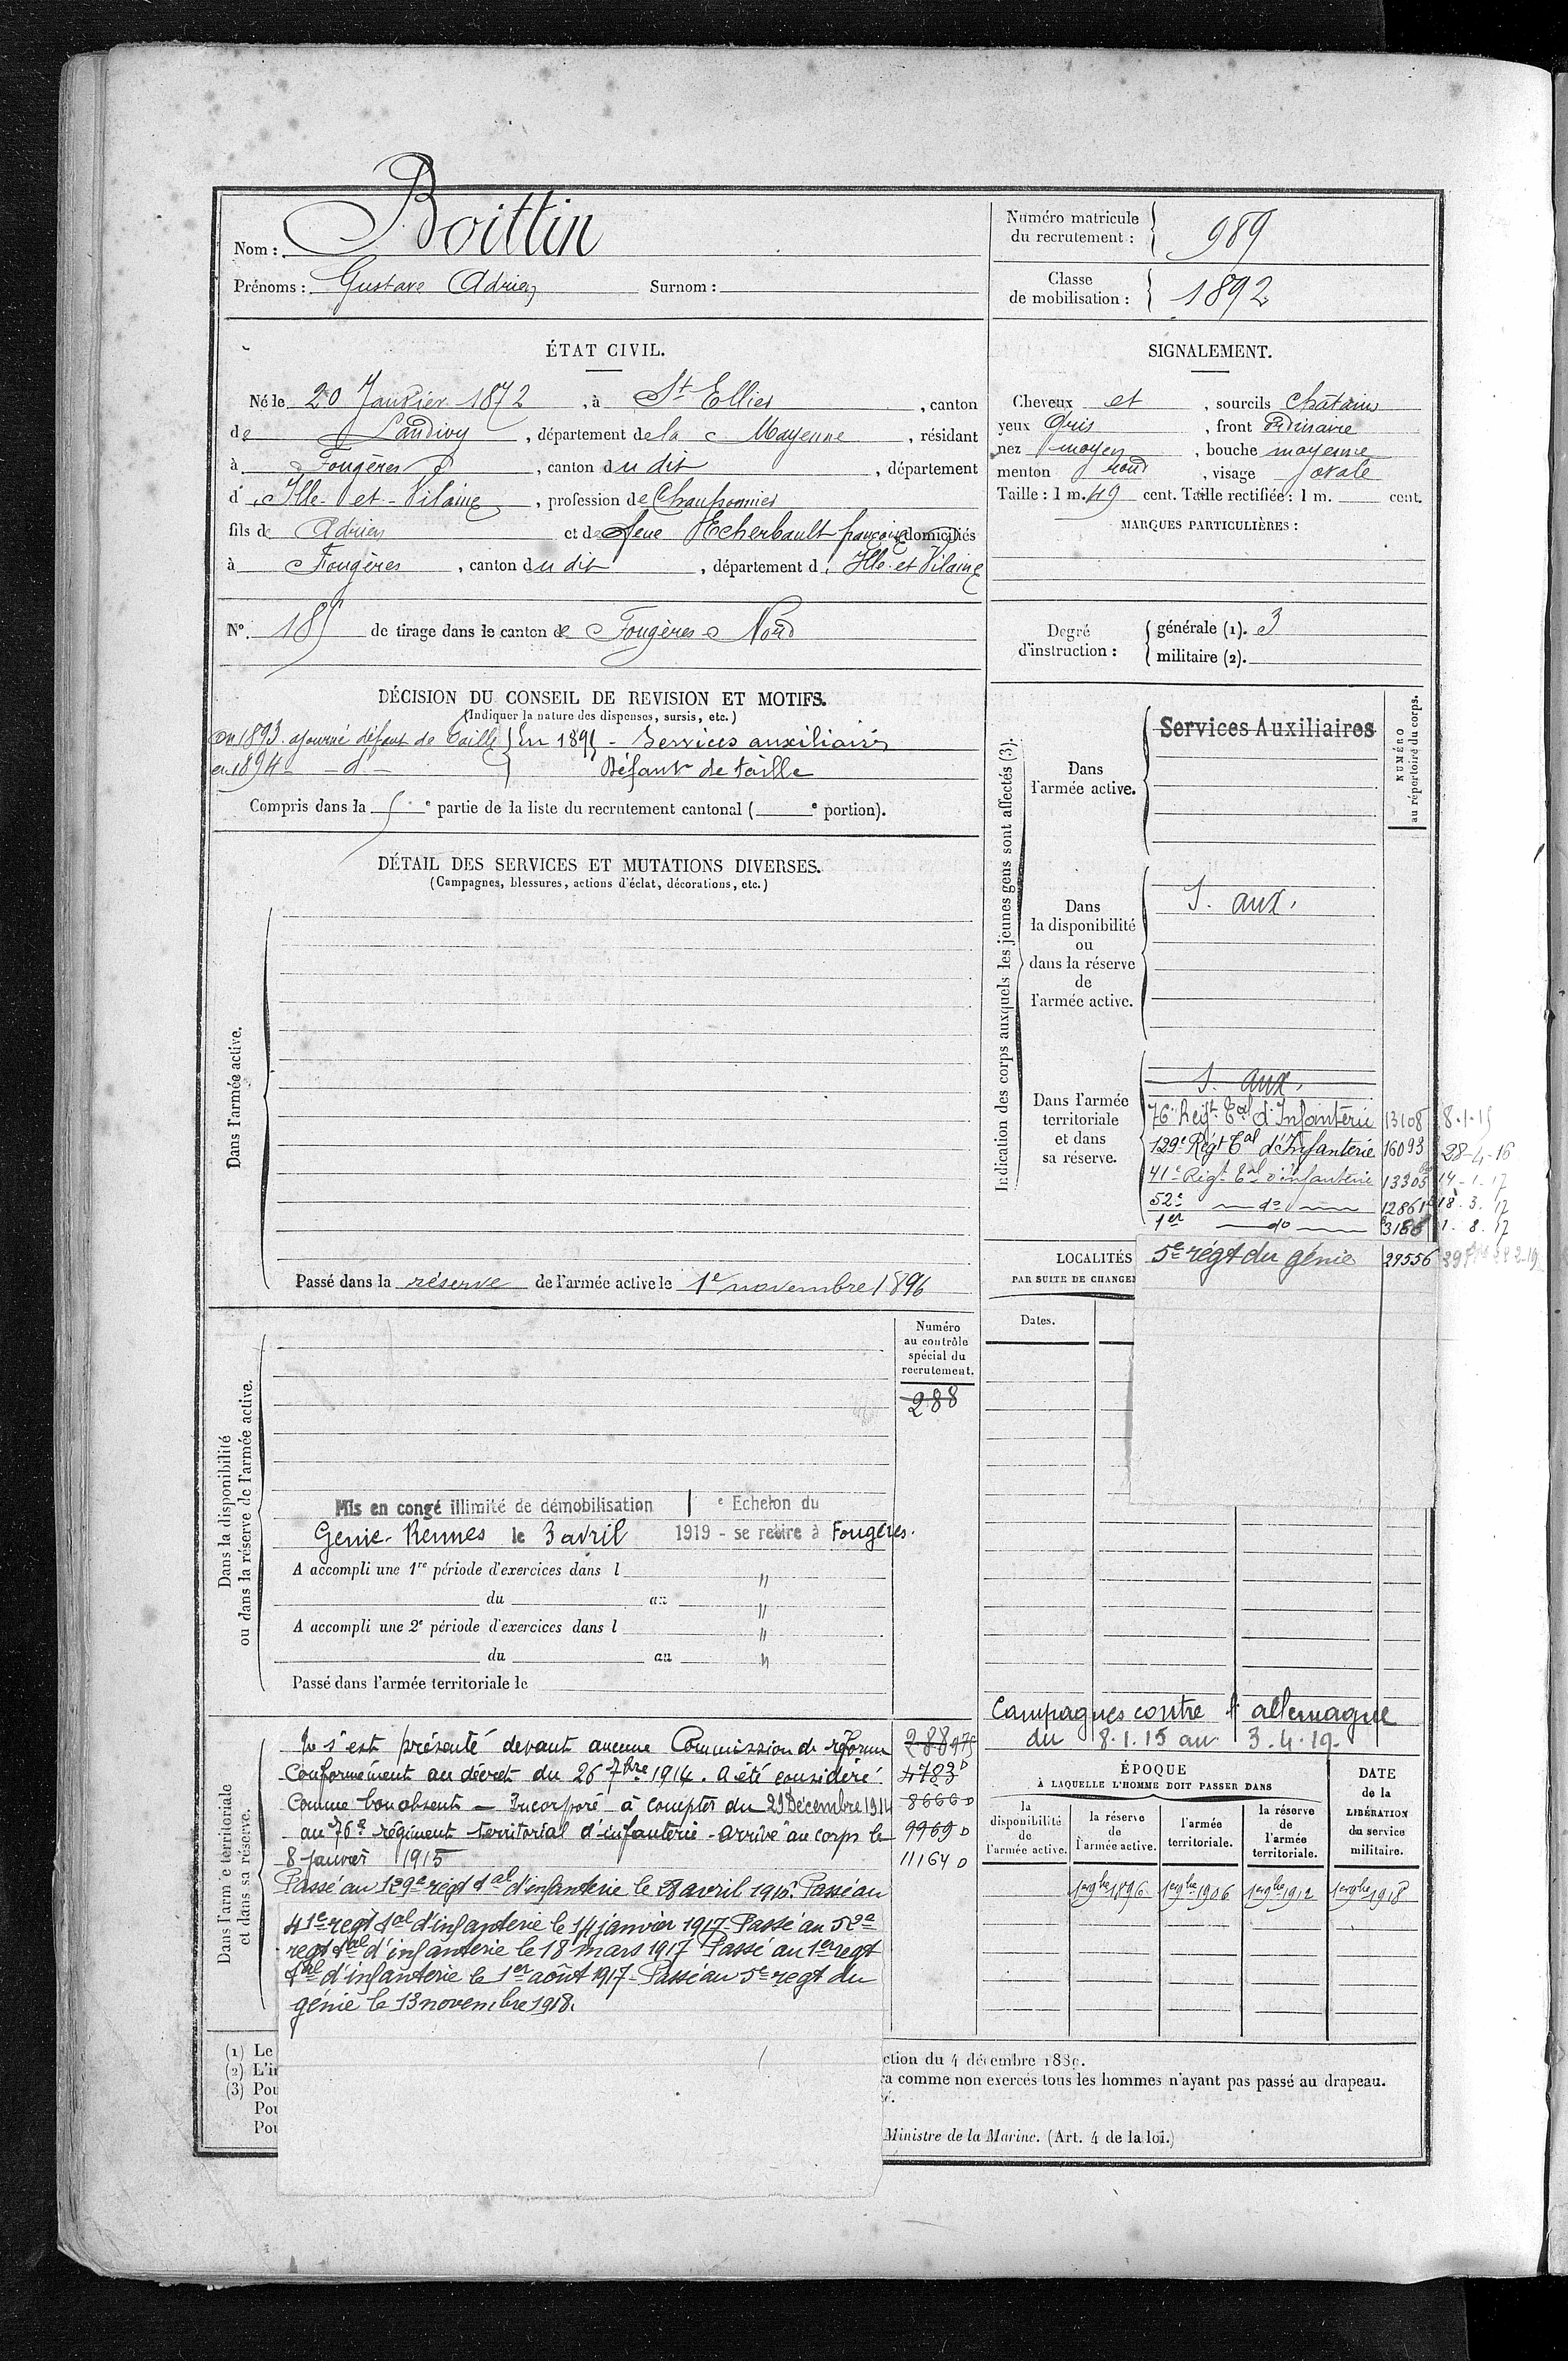 Nom : Boittin
Prénoms : Gustave Adrien Surnom :
Numéro matricule du recrutement : 989
Classe de mobilisation : 1892
ÉTAT CIVIL.
Né le 20 Janvier 1872, à St Ellier, canton
de Landivy, département de la Mayenne, résidant
à Fougères, canton du dit, département
d'Ille-et-Vilaine, profession de
fils de Adrien et de feue Echerbault françoise domiciliés
à Fougères, canton du dit, département d'Ille-et-Vilaine
N° 185 de tirage dans le canton de Fougères Nord
SIGNALEMENT.
Cheveux et, sourcils châtains
yeux Gris, front Ordinaire
nez moyen, bouche moyenne
menton rond, visage ovale
Taille : 1 m. 49 cent. Taille rectifiée : 1 m. cent.
MARQUES PARTICULIÈRES :
Degré d'instruction :
générale (1). 3
militaire (2).
DÉCISION DU CONSEIL DE REVISION ET MOTIFS.
(Indiquer la nature des dispenses, sursis, etc.)
En 1893 ajourné défaut de taille } En 1895 - Services auxiliaires
en 1894 - d° - } Défaut de taille
Compris dans la 5e partie de la liste du recrutement cantonal ( e portion).
DÉTAIL DES SERVICES ET MUTATIONS DIVERSES.
(Campagnes, blessures, actions d'éclat, décorations, etc.)
Dans l'armée active.
Passé dans la réserve de l'armée active le 1er novembre 1896
Indication des corps auxquels les jeunes gens sont affectés (3).
NUMÉRO au répertoire du corps.
Dans l'armée active.
Services Auxiliaires
Dans la disponibilité ou dans la réserve de l'armée active.
S. aux.
Dans l'armée territoriale et dans sa réserve.
S. aux.
76e Regt Tal d'Infanterie 13108 8-1-15
129e Régt Tal d'Infanterie 16093 28-4-16
41e Régt Tal d'infanterie 13305 14-1-17
52e - do - 12861 18.3.17
1er - do - 3188 1-8-17
5e régt du génie 29556
LOCALITÉS
PAR SUITE DE CHANGE
Dates.
Dans la disponibilité ou dans la réserve de l'armée active.
Numéro au contrôle spécial du recrutement.
288
Mis en congé illimité de démobilisation e Echelon du
Génie-Rennes le 3 avril 1919 - se retire à Fougères.
A accompli une 1re période d'exercices dans l "
du au "
A accompli une 2e période d'exercices dans l "
du au "
Passé dans l'armée territoriale le
Dans l'armée territoriale et dans sa réserve.
Ne s'est présenté devant aucune Commission de réforme
Conformément au décret du 26 7bre 1914. A été considéré
Comme bon absent - Incorporé à compter du 29 Décembre 1914
au 76e régiment territorial d'infanterie - arrivé au corps le
8 janvier 1915
Passé au 129e régt tal d'infanterie le 28 avril 1916. Passé au
41e regt tal d'infanterie le 14 janvier 1917 - Passé au 52e
regt tal d'infanterie le 18 mars 1917 Passé au 1er regt
tal d'infanterie le 1er août 1917 - Passé au 5e regt du
génie le 13 novembre 1918.
4783
8666 D
9969 D
11164 D
Campagnes contre l'allemagne
du 8.1.15 au 3.4.19.
ÉPOQUE
À LAQUELLE L'HOMME DOIT PASSER DANS
la disponibilité de l'armée active.
la réserve de l'armée active.
l'armée territoriale.
la réserve de l'armée territoriale.
DATE de la LIBÉRATION du service militaire.
1er 9bre 1896 1er 9bre 1906 1er 9bre 1912 1er 9bre 1918
(1) Le
(2) L'in
(3) Pou
Pou
Pou
ction du 4 décembre 1889.
ra comme non exercés tous les hommes n'ayant pas passé au drapeau.
Ministre de la Marine. (Art. 4 de la loi.)